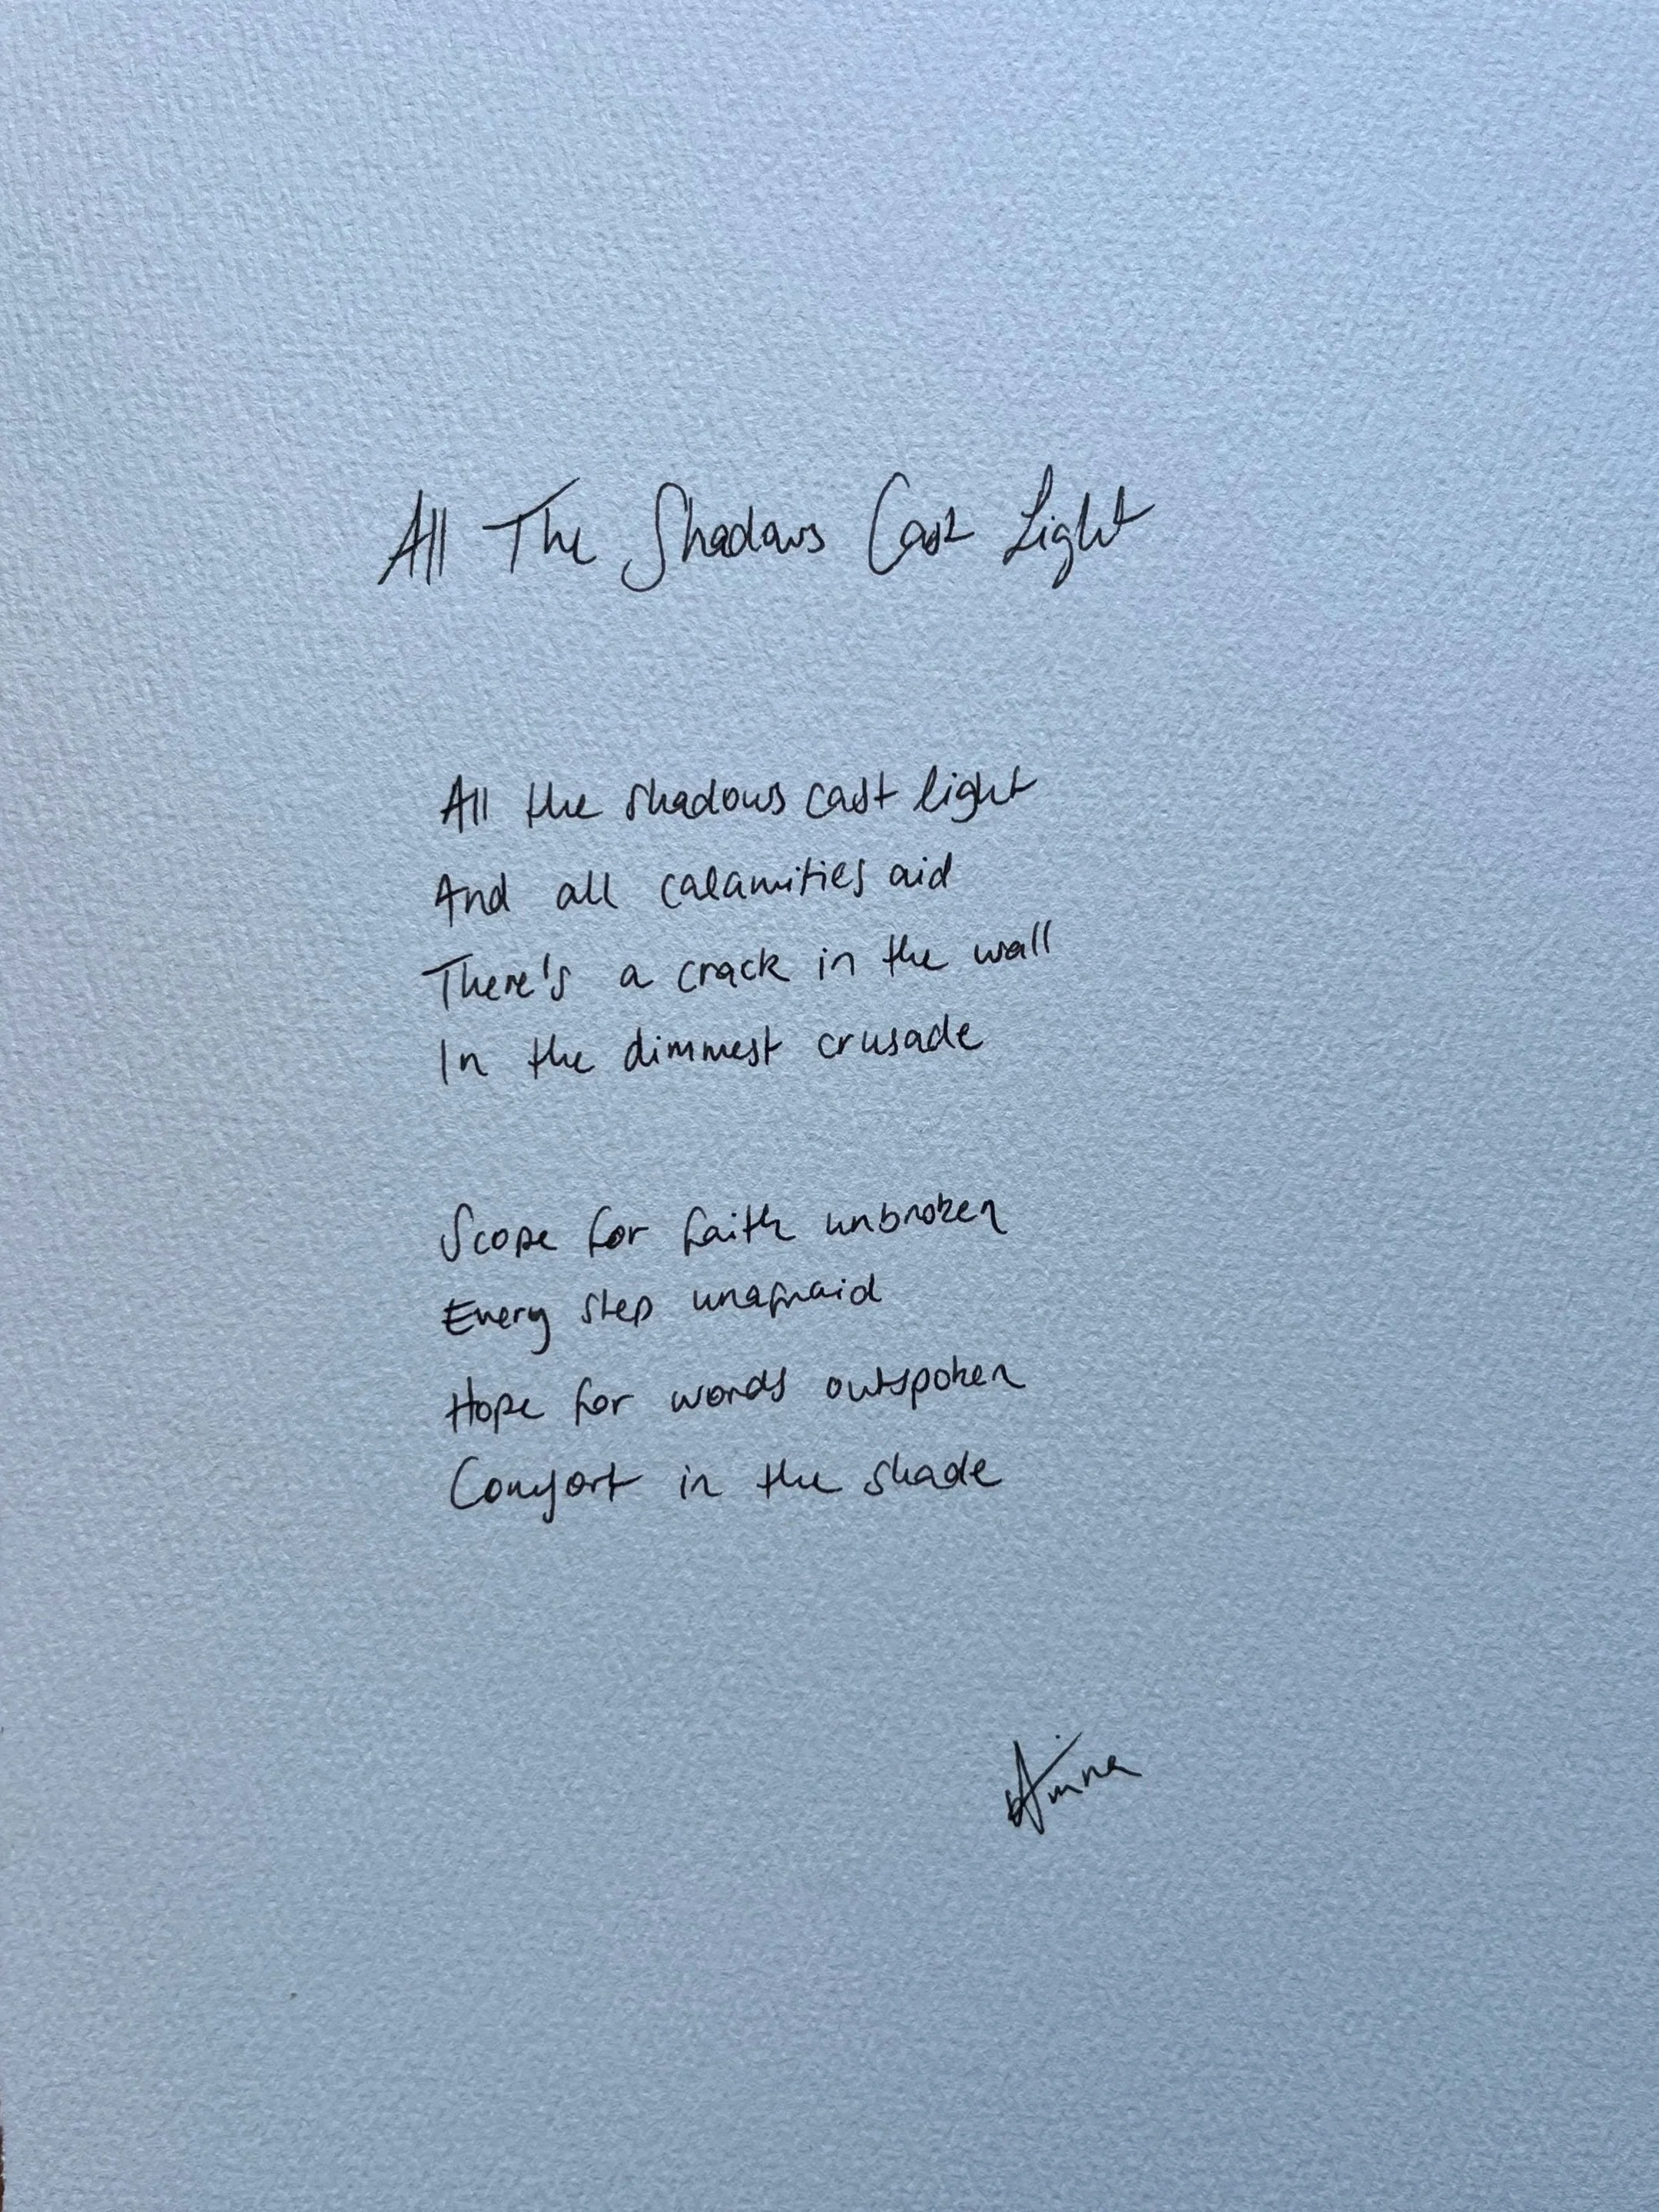 All The Shadows Cast Light
All the shadows cast light
And all calamities aid
There's a crack in the wall
In the dimmest crusade
Scope for faith unbroken
Every step unafraid
Hope for words outspoken
Comfort in the shade
Amina